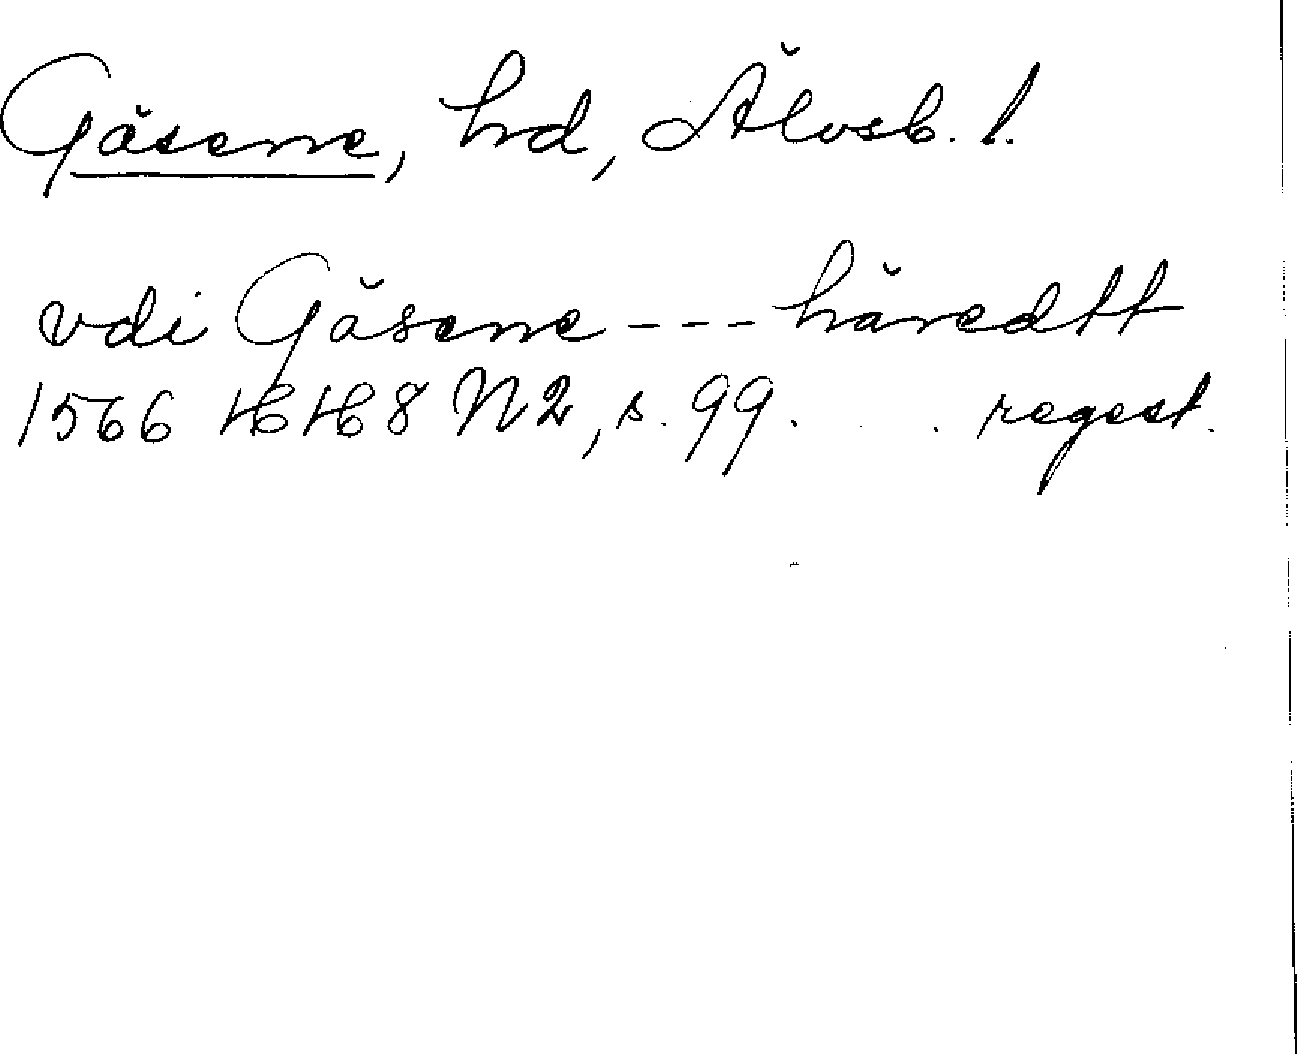 Gäsene, hd, Älvsb. l.
vdi Gäsene --- häredtt
1566 HH 8 N 2, s. 99. regest.